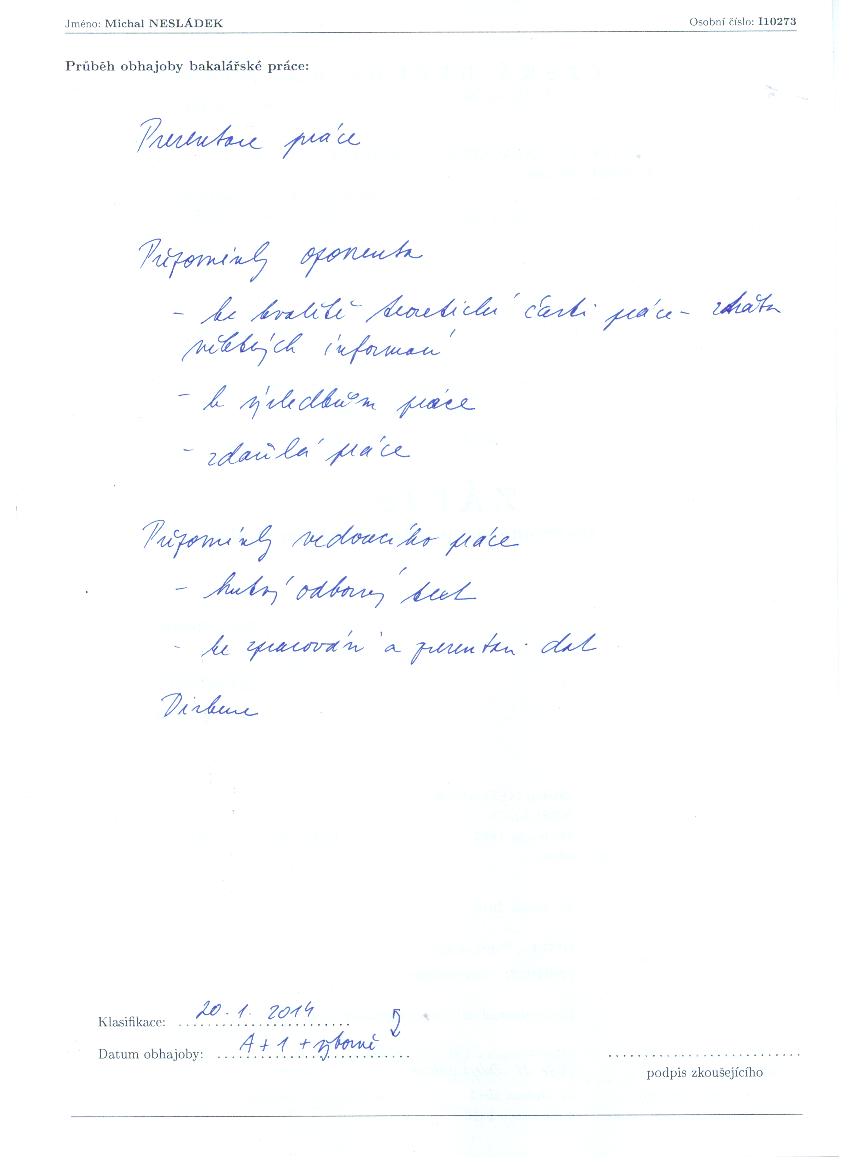 Jméno: Michal NESLÁDEK Osobní číslo: I10273
Průběh obhajoby bakalářské práce:
Prezentace práce
Připomínky oponenta
- ke kvalitě teoretické části práce -
některých informací
- k výsledkům práce
- zdařilá práce
Připomínky vedoucího práce
- odborný text
- ke zpracování a prezentaci dat
Diskuse
Klasifikace: 20. 1. 2014
Datum obhajoby: A + 1 + výborně
podpis zkoušejícího